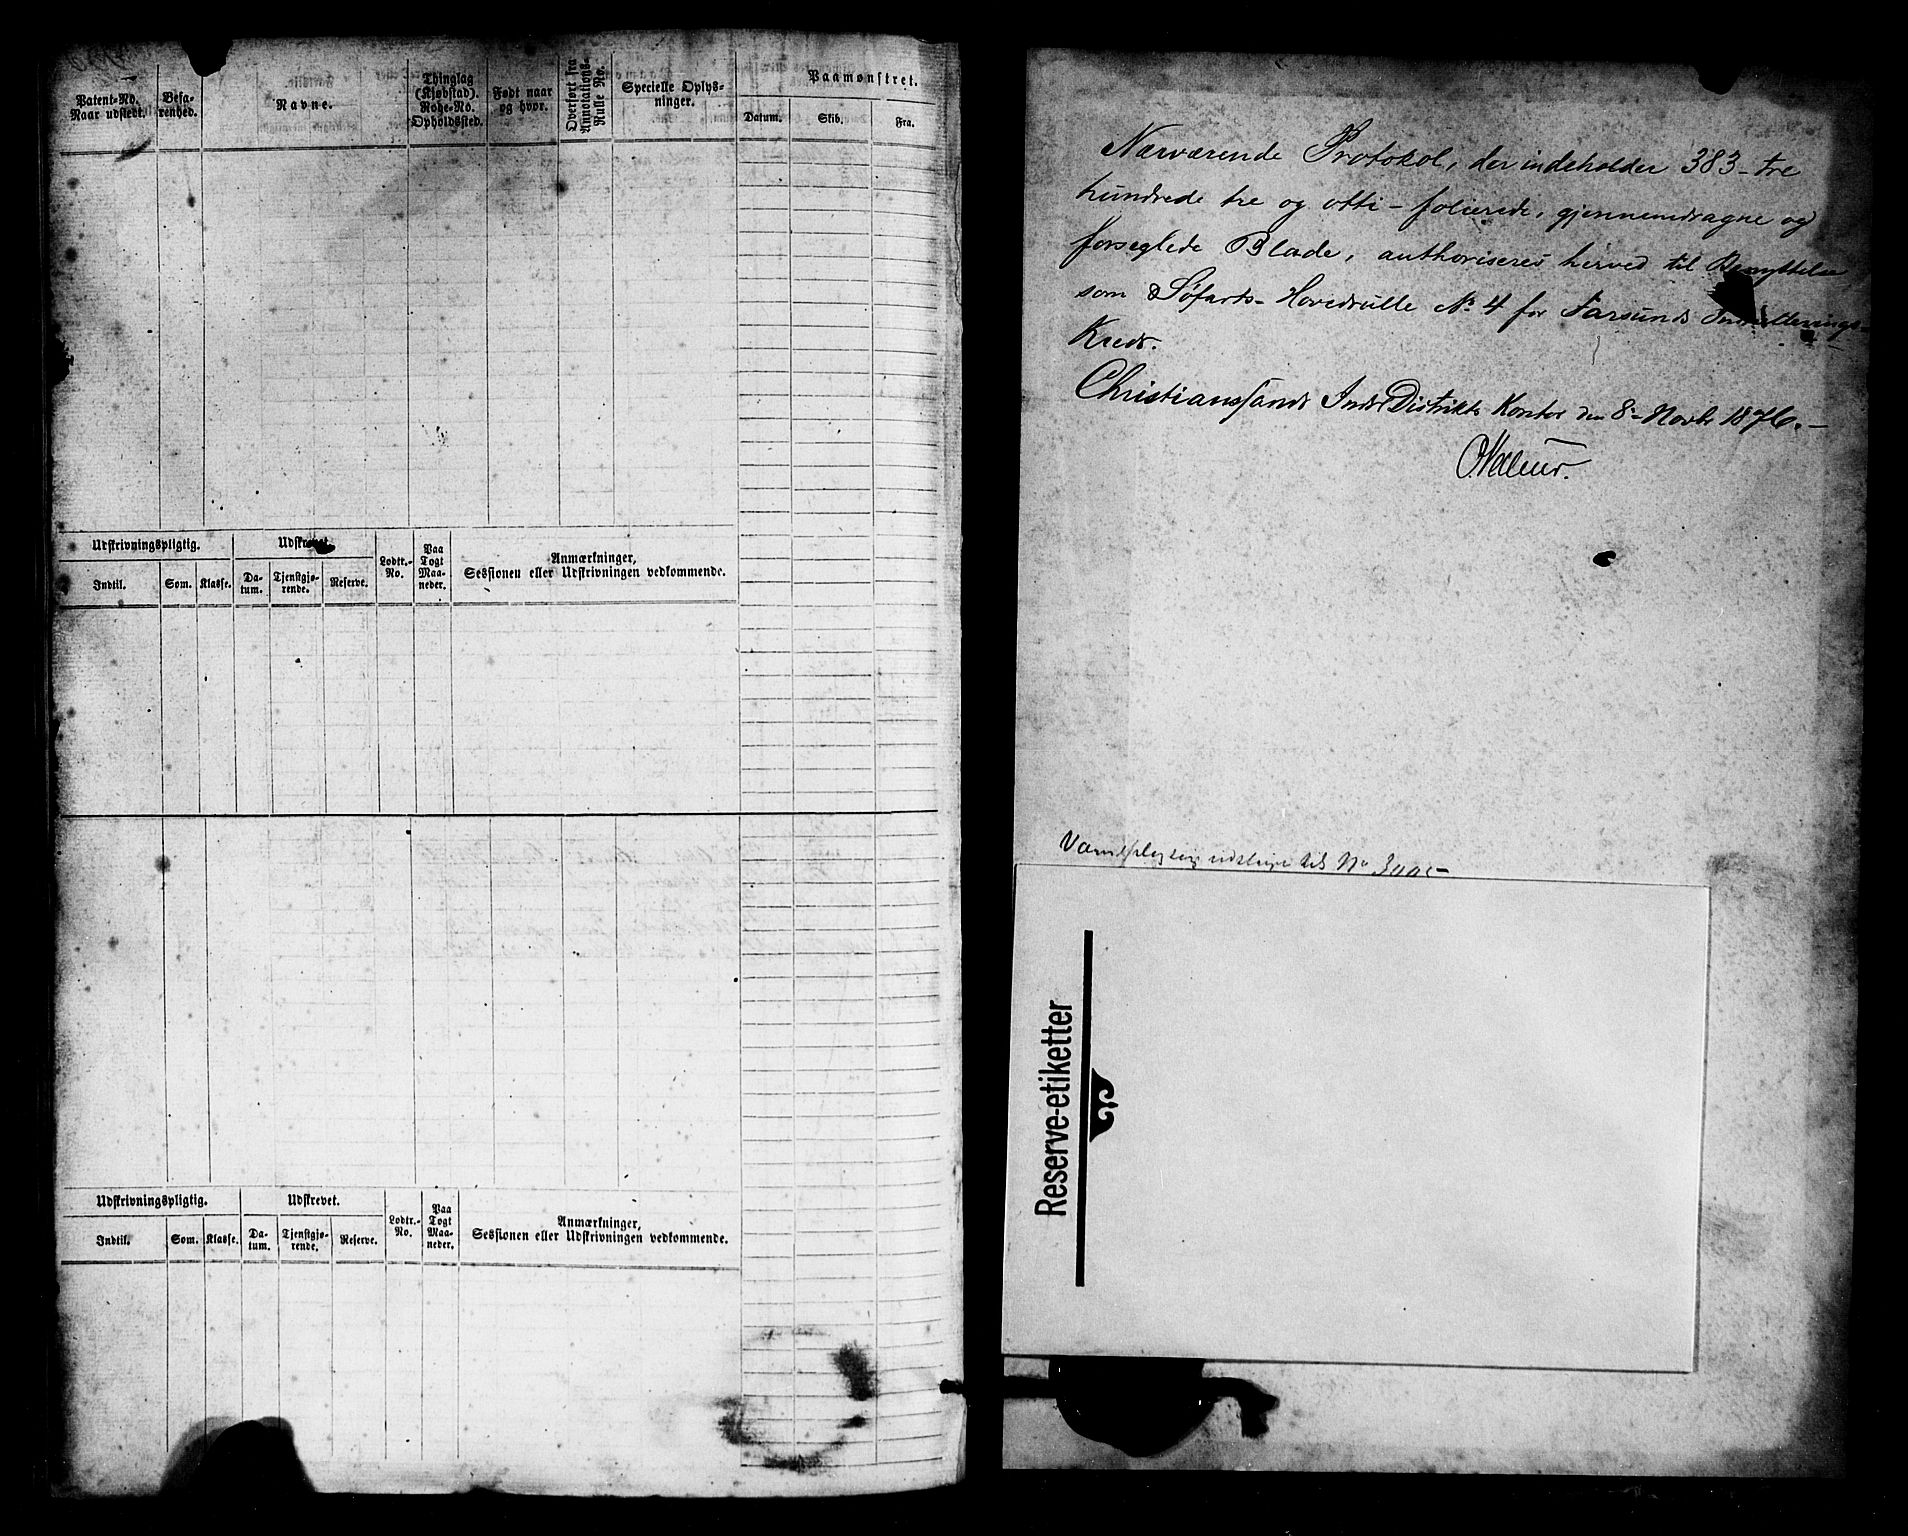 Patent-No.
Naar udstedt.
Befa-
renhed.
Navne.
Thinglag
(Kjøbstad).
Rode-No.
Opholdssted.
Født naar
og hvor.
Overført fra
Annotations-
Rulle No.
Specielle Oplys-
ninger.
Paamønstret.
Datum.
Skib.
Fra.
Udskrivningspligtig.
Udskrevet.
Lodtr.-
No.
Paa
Togt
Maa-
neder.
Anmærkninger,
Sessionen eller Udskrivningen vedkommende.
Indtil.
Som.
Klasse.
Da-
tum.
Tjenstgjø-
rende.
Reserve.
Udskrivningspligtig.
Udskrevet.
Lodtr.-
No.
Paa
Togt
Maa-
neder.
Anmærkninger,
Sessionen eller Udskrivningen vedkommende.
Indtil.
Som.
Klasse.
Da-
tum.
Tjenstgjø-
rende.
Reserve.
Nærværende Protokol, der indeholder 383 - tre
hundrede tre og otti - folierede, gjennemdragne og
forseglede Blade, authoriseres herved til Benyttelse
som Søfarts- Hovedrulle No 4 for Farsunds Indrullerings-
Kreds.
Christianssands Indr Distrikts Kontor den 8de Novbr 1876.
til No
Reserve-etiketter